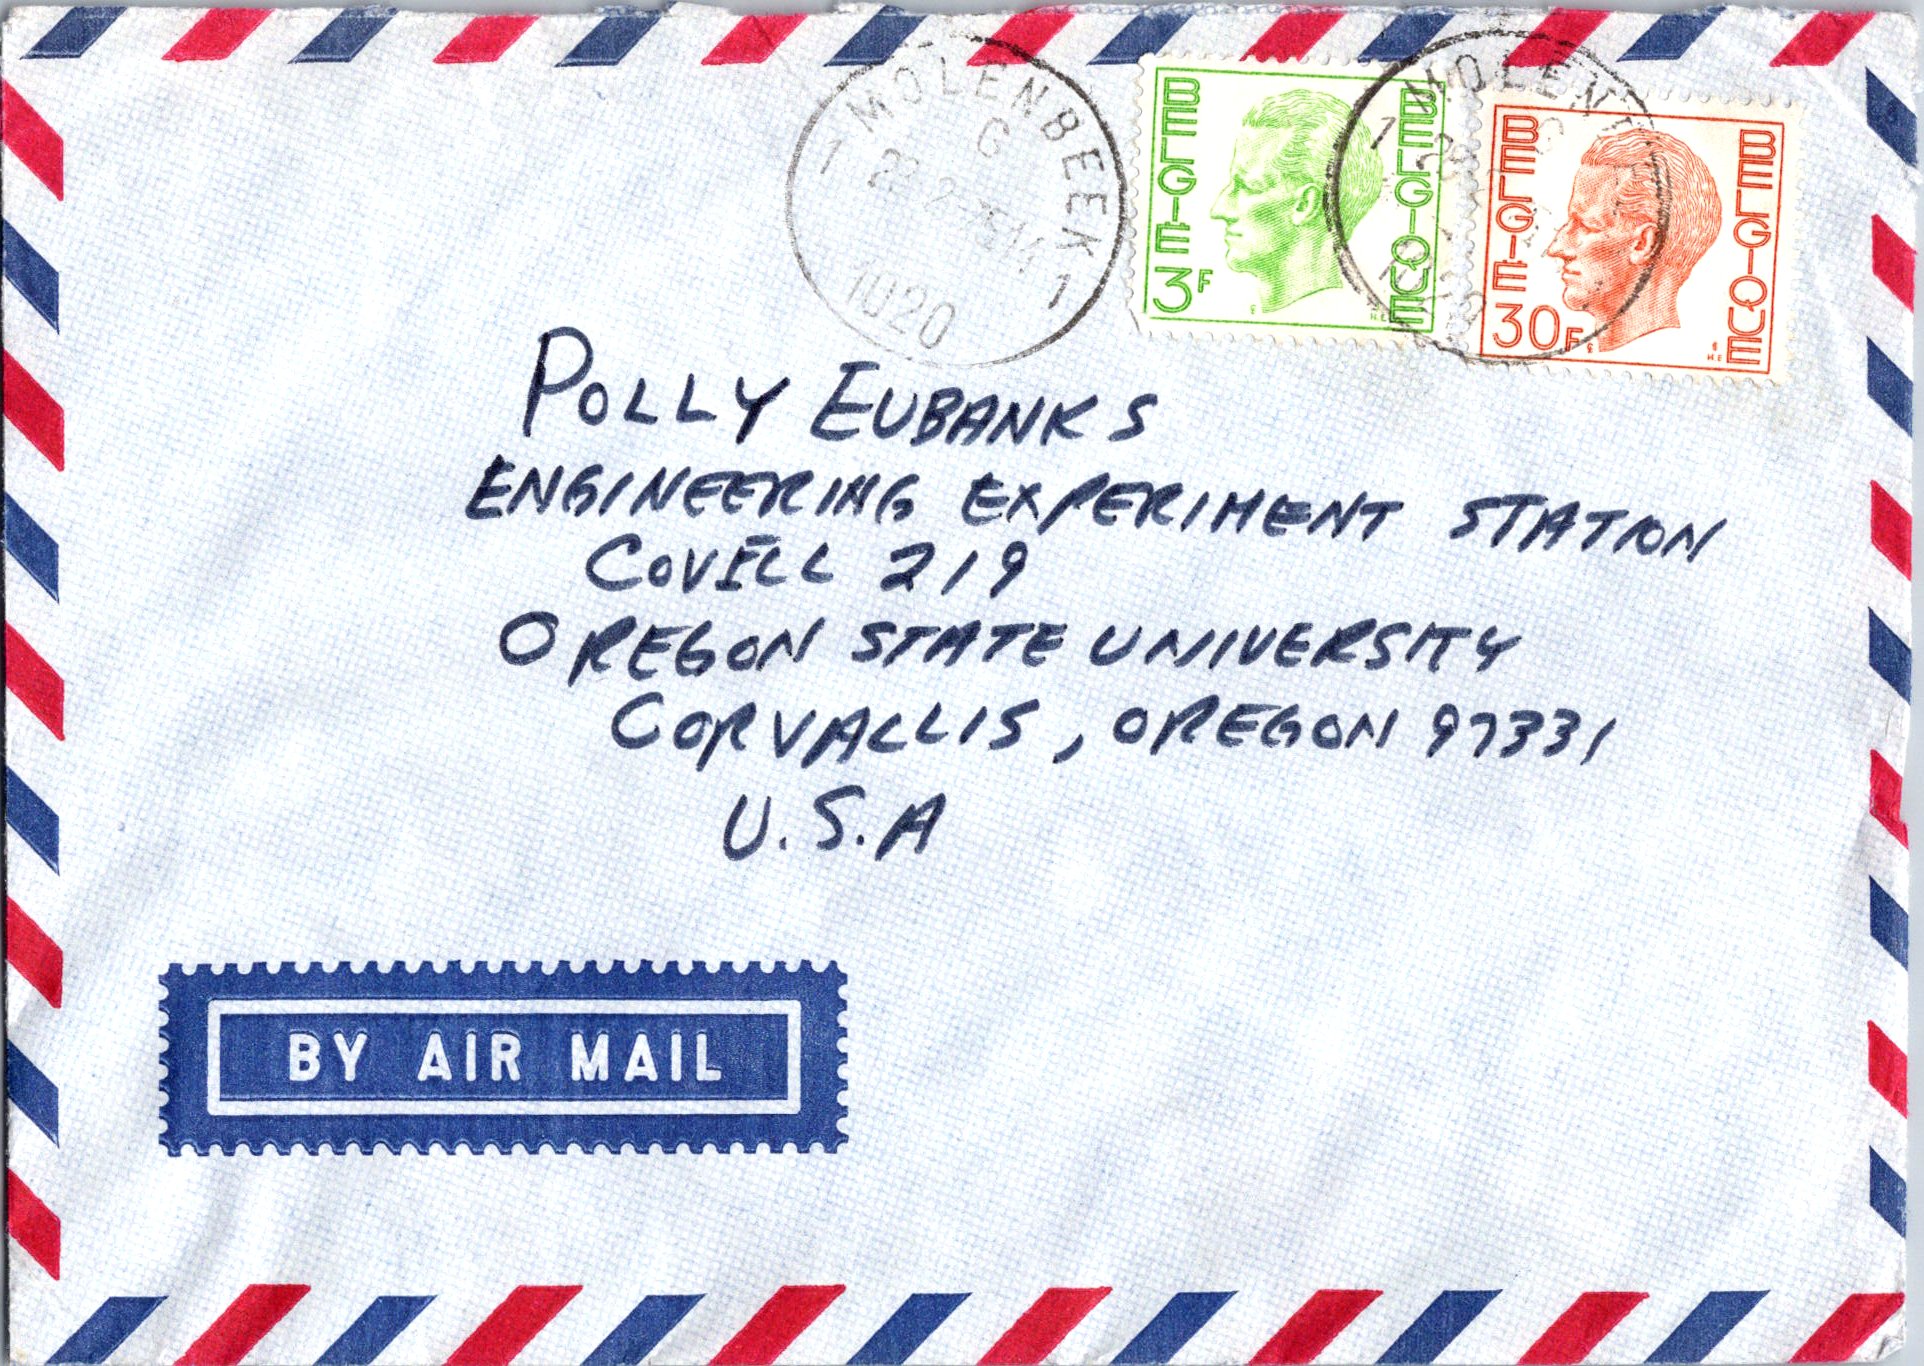 MOLENBEEK
G
1 1
1020
BELGIE BELGIQUE
3F
MOLEN
1
BELGIE BELGIQUE
30F
POLLY EUBANKS
ENGINEERING EXPERIMENT STATION
COVELL 219
OREGON STATE UNIVERSITY
CORVALLIS, OREGON 97331
U.S.A
BY AIR MAIL